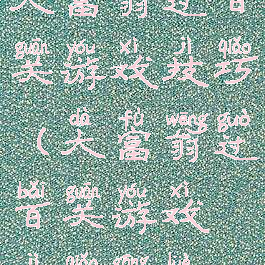 大富翁过百
guān yóu xì jì qiǎo
关游戏技巧
dà fù wēng guò
(大富翁过
bǎi guān yóu xì
百关游戏
jì qiǎo gōng lüè